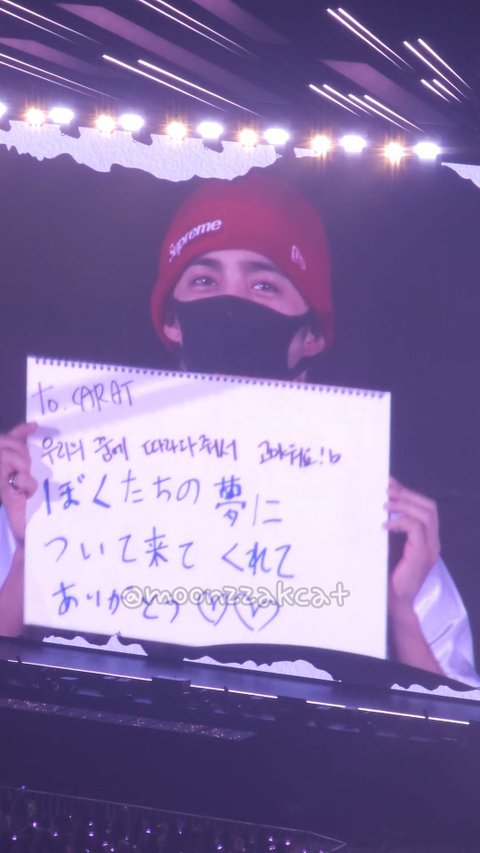 Supreme
to. CARAT
우리의 꿈에 따라와줘서 고마워요!
ぼくたちの夢に
ついて来てくれて
ありがとう♡♡
@moonzzakcat